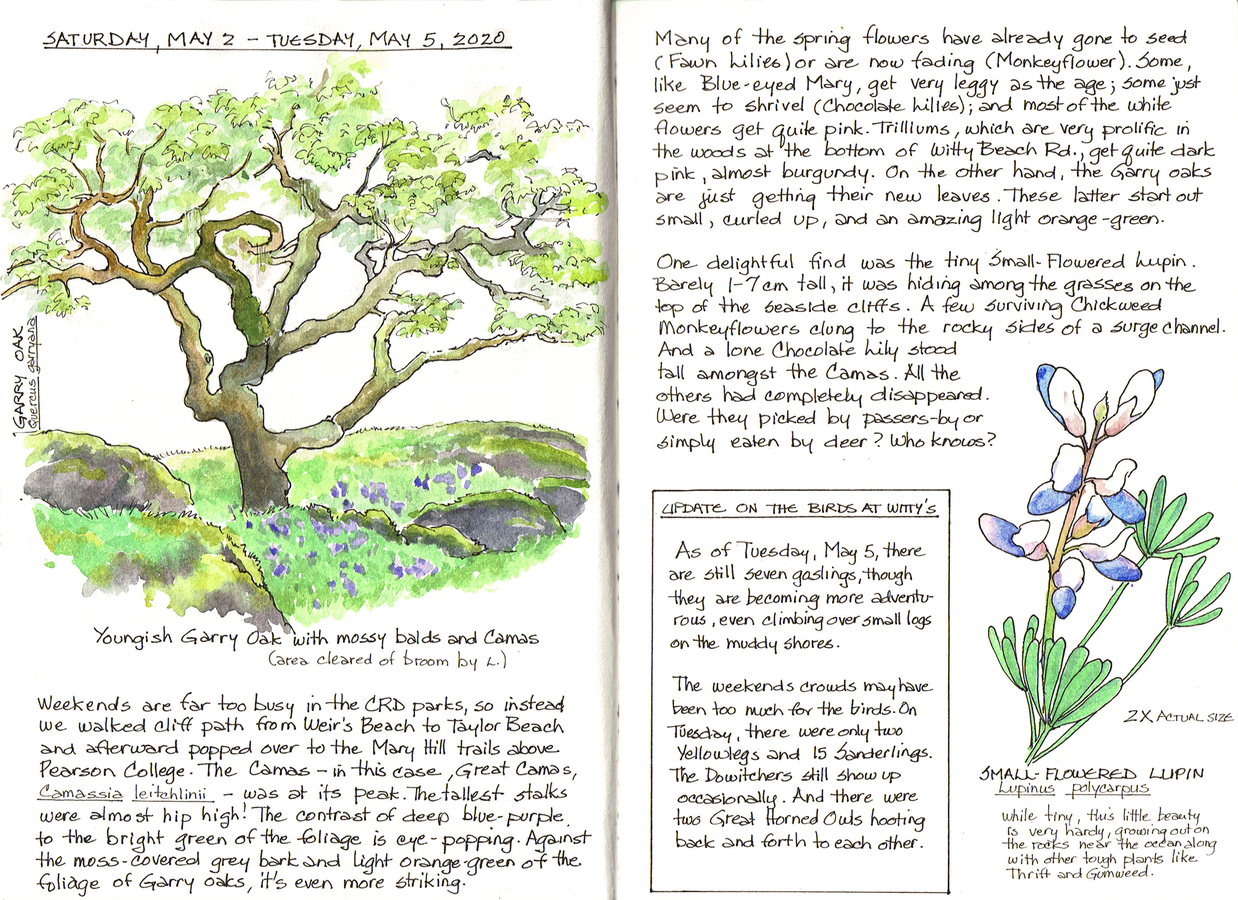 SATURDAY, MAY 2 – TUESDAY, MAY 5, 2020
GARRY OAK
Quercus garryana
Youngish Garry Oak with mossy balds and Camas
(area cleared of broom by L.)
Weekends are far too busy in the CRD parks, so instead
we walked cliff path from Weir's Beach to Taylor Beach
and afterward popped over to the Mary Hill trails above
Pearson College. The Camas – in this case, Great Camas,
Camassia leitchlinii – was at its peak. The tallest stalks
were almost hip high! The contrast of deep blue-purple
to the bright green of the foliage is eye-popping. Against
the moss-covered grey bark and light orange-green of the
foliage of Garry oaks, it's even more striking.
Many of the spring flowers have already gone to seed
(Fawn Lilies) or are now fading (Monkeyflower). Some,
like Blue-eyed Mary, get very leggy as the age; some just
seem to shrivel (Chocolate Lilies); and most of the white
flowers get quite pink. Trilliums, which are very prolific in
the woods at the bottom of Witty Beach Rd., get quite dark
pink, almost burgundy. On the other hand, the Garry oaks
are just getting their new leaves. These latter start out
small, curled up, and an amazing light orange-green.
One delightful find was the tiny Small-Flowered Lupin.
Barely 1-7cm tall, it was hiding among the grasses on the
top of the seaside cliffs. A few surviving Chickweed
Monkeyflowers clung to the rocky sides of a surge channel.
And a lone Chocolate Lily stood
tall amongst the Camas. All the
others had completely disappeared.
Were they picked by passers-by or
simply eaten by deer? Who knows?
UPDATE ON THE BIRDS AT WITTY'S
As of Tuesday, May 5, there
are still seven goslings, though
they are becoming more adventu-
rous, even climbing over small logs
on the muddy shores.
The weekends crowds may have
been too much for the birds. On
Tuesday, there were only two
Yellowlegs and 15 Sanderlings.
The Dowitchers still show up
occasionally. And there were
two Great Horned Owls hooting
back and forth to each other.
2X ACTUAL SIZE
SMALL-FLOWERED LUPIN
Lupinus polycarpus
While tiny, this little beauty
is very hardy, growing out on
the rocks near the ocean along
with other tough plants like
Thrift and Gumweed.